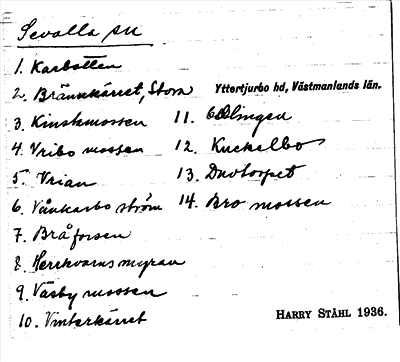 Sevalla sn
1. Karbotten
2. Brännkärret, Stora
Yttertjurbo hd, Västmanlands län.
3. Kinskmossen
4. Vribo mossen
5. Vrian
6. Vånkarbo ström
7. Bråforsen
8. Herrkvarns myran
9. Väsby mossen
10. Vinterkärret
11. Edlingen
12. Knekelbo
13. Duvtorpet
14. Bro mossen
HARRY STÅHL 1936.